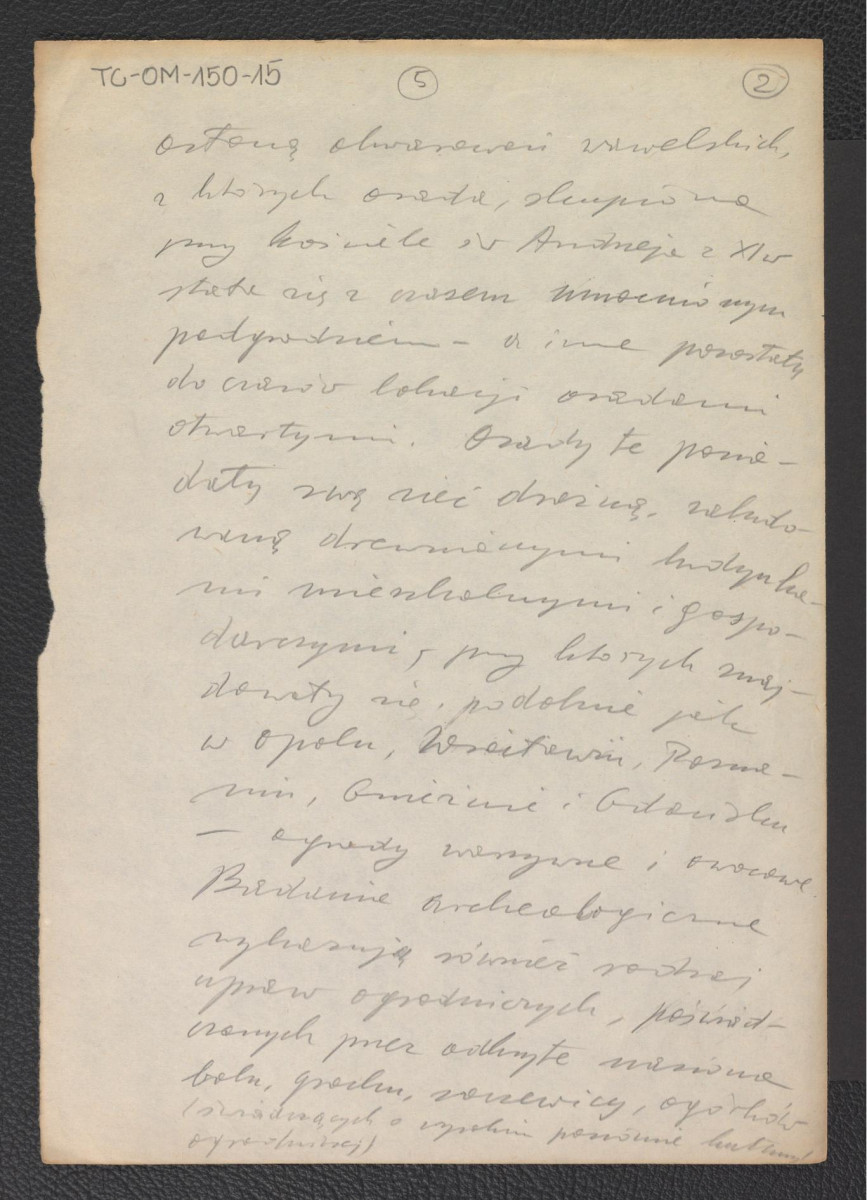 TC-OM-150-15 5 2
osłoną obwarowań wawelskich,
z których osada, skupiona
przy kościele św Andrzeja z XI w
stała się z czasem umocnionym
podgrodziem – a inne pozostały
do czasów lokacji osadami
otwartymi. Osady te posia-
dały swą sieć drożną, zabudo-
waną drewnianymi budynka-
mi mieszkalnymi i gospo-
darczymi, przy których znaj-
dowały się, podobnie jak
w Opolu, Wrocławiu, Pozna-
niu, Gnieźnie i Gdańsku
– ogrody warzywne i owocowe.
Badania archeologiczne
wykazują również rodzaj
upraw ogrodniczych, poświad-
czonych przez odkryte nasiona
bobu, grochu, soczewicy, ogórków
(świadczących o wysokim poziomie kultury
ogrodniczej)